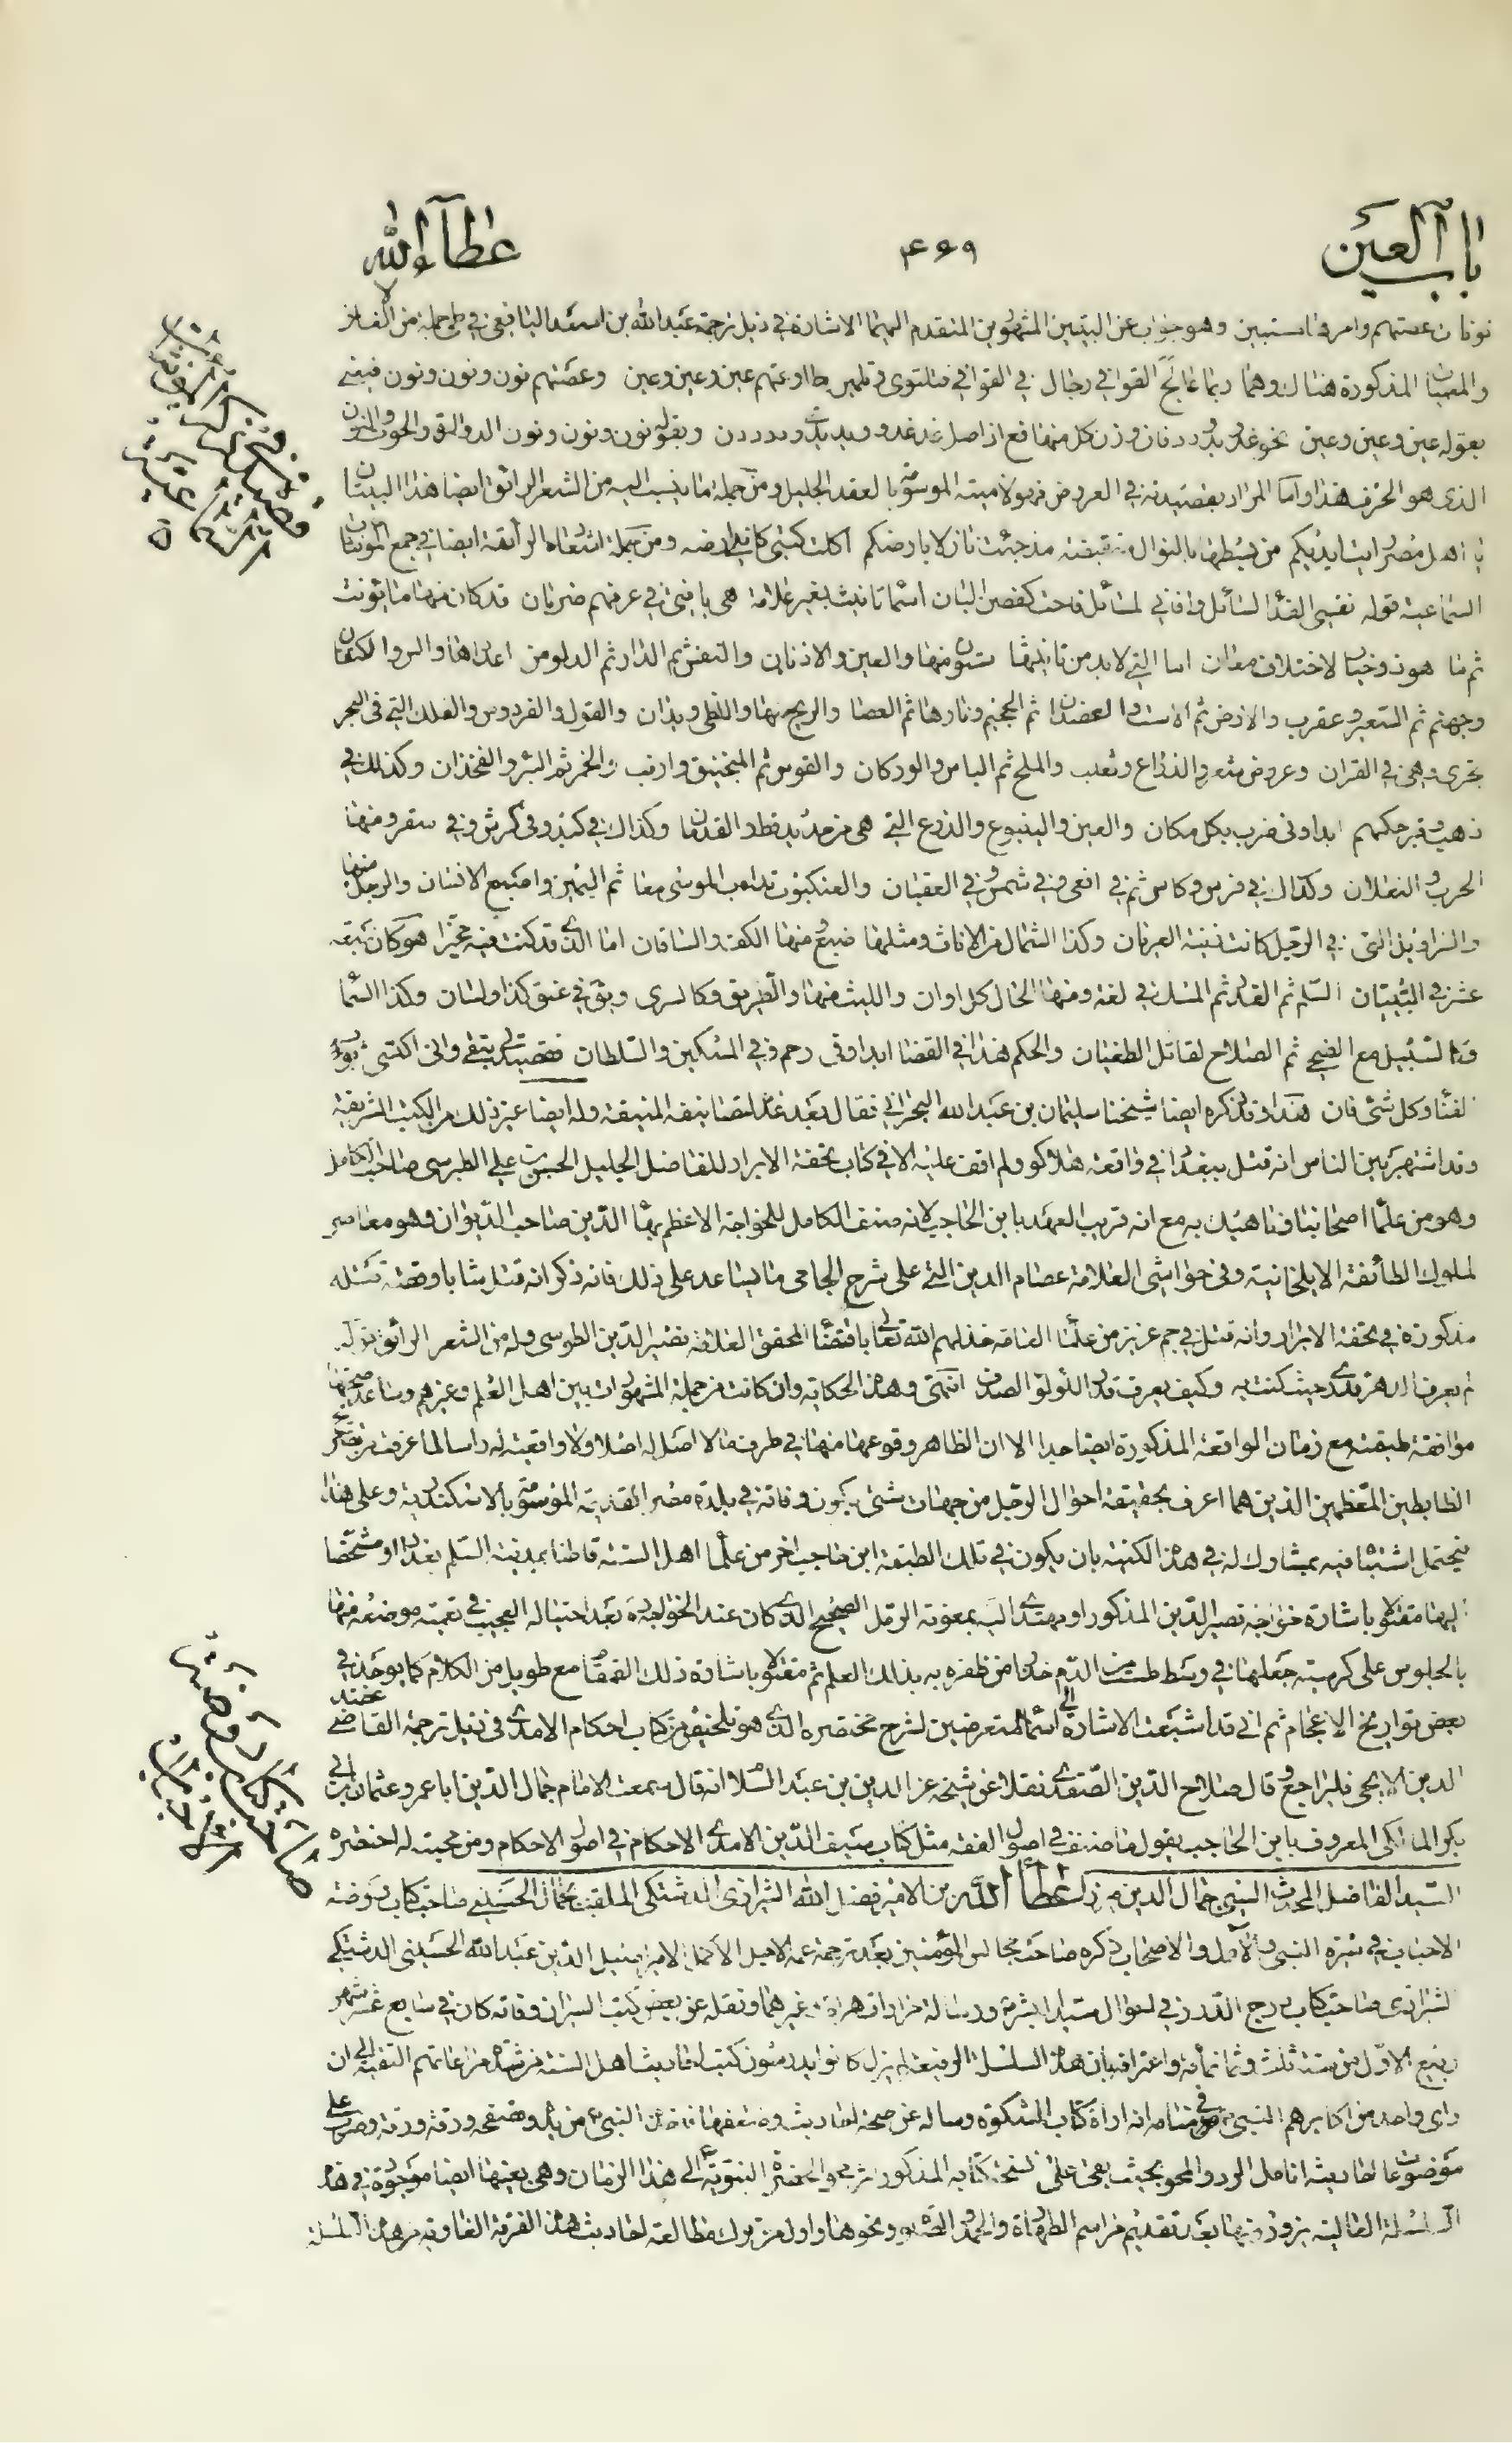 باب العين
۴۶۹
عطاء الله
نونان عصتهم وامرها مستبين وهو جواب عن البيتين المشهورين المتقدم اليهما الاشارة في ذيل ترجمة عبد الله بن اسعد اليافعي في طى جملة من الغاز
والمعميات المذكورة هناك وهما ربما عالج القوافي رجال في القوافي فتلتوى وتلين طاوعتهم عين وعين وعين وعصتهم نون ونون ونون فيعنى
بقوله عين وعين وعين نحو غد ويد ودد فان وزن كل منها فع اذ اصل غد غدو ويد يدى ودد ددن وبقوله نون ونون ونون الدواة والحوت والنون
الذى هو الحرف هذا واما المراد بقصيدته في العروض فهو لاميته الموسومة بالعقد الجليل ومن جملة ما ينسب اليه من الشعر الرائق ايضا هذا البيتان
يا اهل مصر رايت ايديكم من بسطها بالنوال منقبضة مذ جئت نازلا بارضكم اكلت كتبى كاننى ارضه ومن جملة اشعاره الرائقة ايضا في جمع المونثات
السماعية قوله نفسى الفداء لسائل وافانى لمسائل فاحت كغصن البان اسماء تانيث بغير علامة هى يا فتى في عرفهم ضربان قد كان منها ما تونث
ثم ما هو ذو خيار لاختلاف معان اما التى لا بد من تانيثها ستون منها والعين والاذنان والنفس ثم الدار ثم الدلو من اعدادها والسن والكتفان
وجهنم ثم السعير وعقرب والارض ثم الاست والعضدان ثم الجحيم ونارها ثم العصا والريح منها واللظى ويدان والغول والفردوس والفلك التى في البحر
تجرى وهى في القران وعروض شعر والذراع وثعلب والملح ثم الفاس والوركان والقوس ثم المنجنيق وارنب والخمر ثم البئر والفخذان وكذلك في
ذهب وفهر حكمهم ابدا وفى ضرب بكل مكان والعين والينبوع والدرع التى هى من حديد قط والقدمان وكذاك في كبد وفى كرش وفى سقر ومنها
الحرب والنعلان وكذاك في فرس وكاس ثم في افعى وفى شمس وفى العقبان والعنكبوت تدأب والموسى معا ثم اليمين واصبع الانسان والرجل منها
والسراويل التى في الرجل كانت زينة العريان وكذا الشمال من الاناث ومثلها ضبع ومنها الكف والساقان اما الذى قد كنت فيه مخيرا هو كان سبعة
عشر في التبيان السلم ثم القدر ثم المسك في لغة ومنها الحال كل اوان والليث منها والطريق وكالسرى ويقال في عنق كذا ولسان وكذا السماء
وكذا السبيل مع الضحى ثم السلاح لقاتل الطغيان والحكم هذا في القفا ابدا وفى رحم وفى السكين والسلطان فقصيدتى تبقى وانى اكتسى ثوب
الفناء وكل شئ فان هذا وقد ذكره ايضا شيخنا سليمان بن عبد الله البحرانى فقال بعد عد تصانيفه المنيفة وله ايضا غير ذلك من الكتب الشريفة
وقد اشتهر بين الناس انه قتل ببغداد في واقعة هلاكو ولم اقف عليه الا في كتاب تحفة الابرار للفاضل الجليل الحسن بن على الطبرسى صاحب الكامل
وهو من علماء اصحابنا وناهيك به مع انه قريب العهد بابن الحاجب لانه صنف الكامل للخواجة الاعظم بهاء الدين صاحب الديوان وهو معاصر
لملوك الطائفة الايلخانية وفى حواشى العلامة عصام الدين التى على شرح الجامى ما يساعد على ذلك فانه ذكر انه قتل شابا وقصة قتله
مذكورة في تحفة الابرار وانه قتل في جم عزيز من علماء العامة خذلهم الله تعالى باقتضاء المحقق العلامة نصير الدين الطوسى وله من الشعر الرائق قوله
لم يعرف الدهر قدرى حيث كنت به وكيف يعرف قدر اللؤلؤ الصدف انتهى وهذه الحكاية وان كانت من جملة المشهورات بين اهل العلم وغيرهم وساعد صحتها
موافقة طبقته مع زمان الواقعة المذكورة ايضا جدا الا ان الظاهر وقوعها منها في طرف ما لا اصل له اصلا ولا واقعية له راسا لما عرفت من تصريح
الضابطين المتقظين الذين هما اعرف بحقيقة احوال الرجل من جهات شتى بكون وفاته في بلدة مصر القديمة الموسومة بالاسكندرية وعلى هذا
فيحتمل اشتباه فيه بمشارك له في هذه الكنية بان يكون في تلك الطبقة ابن حاجب اخر من علماء اهل السنة قاطنا بمدينة السلم بغداد او مشخصا
اليها مقتولا باشارة خواجه نصير الدين المذكور او مهتدى اليه بمعونة الرمل الصحيح الذى كان عند الخواجه بعد احتياله العجيب في تعمية موضعه منها
بالجلوس على كرسية جعلها في وسط طشت من الدم حذرا من ظفره به بذلك العلم ثم مقتولا باشارة ذلك القمقام مع طويل من الكلام كما يوجد في
بعض تواريخ الاعجام ثم انى قد اشبعت الاشارة الى اسماء المتعرضين لشرح مختصره الذى هو تلخيص من كتاب احكام الامدى في ذيل ترجمة القاضى عضد
الدين الايجى فليراجع وقال صلاح الدين الصفدى نقلا عن شيخه عز الدين بن عبد السلام انه قال سمعت الامام جمال الدين ابا عمرو عثمان بن ابى
بكر المالكى المعروف بابن الحاجب يقول ما صنف في اصول الفقه مثل كتاب سيف الدين الامدى الاحكام في اصول الاحكام ومن محبته له اختصره
السيد الفاضل المحدث السنى جمال الدين عطاء الله بن الامير فضل الله الشيرازى الدشتكى الملقب بجمال الحسينى صاحب كتاب روضة
الاحباب في سيرة النبى والال والاصحاب ذكره صاحب مجالس المؤمنين بعد ترجمة عمه الاجل الاكمل الامير اصيل الدين عبد الله الحسينى الدشتكى
الشيرازى صاحب كتاب درج الدرر في احوال سيد البشر ورسالة مزارات هراة وغيرهما ونقله عن بعض كتب السير ان وفاته كان في سابع عشر شهر
ربيع الاول من سنة ثلث وثمانمائة واعترافه بان هذه السلسلة الرفيعة لم يزل كانوا يدرسون كتب احاديث اهل السنة من شدة مراعاتهم التقية الى ان
راى واحد من اكابرهم النبى ص في منامه انه اراه كتاب المشكوة وساله عن صحة احاديثه وضعفها فاخذه النبى ص من يده وتصفحه ورقة ورقة وضرب على
موضوعات احاديثه انامل الرد والمحو بحيث بقى على نسخة كتابه المذكور اثر محو الحضرة النبوية الى هذا الزمان وهى بعينها ايضا موجودة في هذه
السلسلة العالية يزورونها بعد تقديم مراسم الطهارة والحمد والصلوة ونحوها واول من ترك مطالعة احاديث هذه الفرقة الغاوية من هذه السلسلة